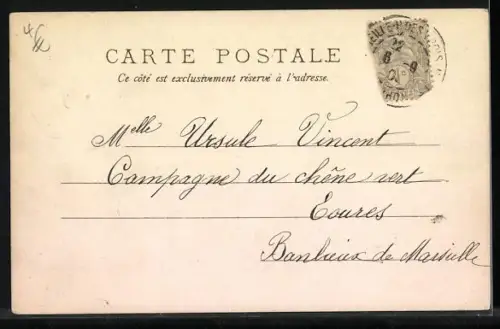 CARTE POSTALE
Ce côté est exclusivement réservé à l'adresse.
Melle Ursule Vincent
Campagne du chêne vert
Eoures
Banlieue de Marseille